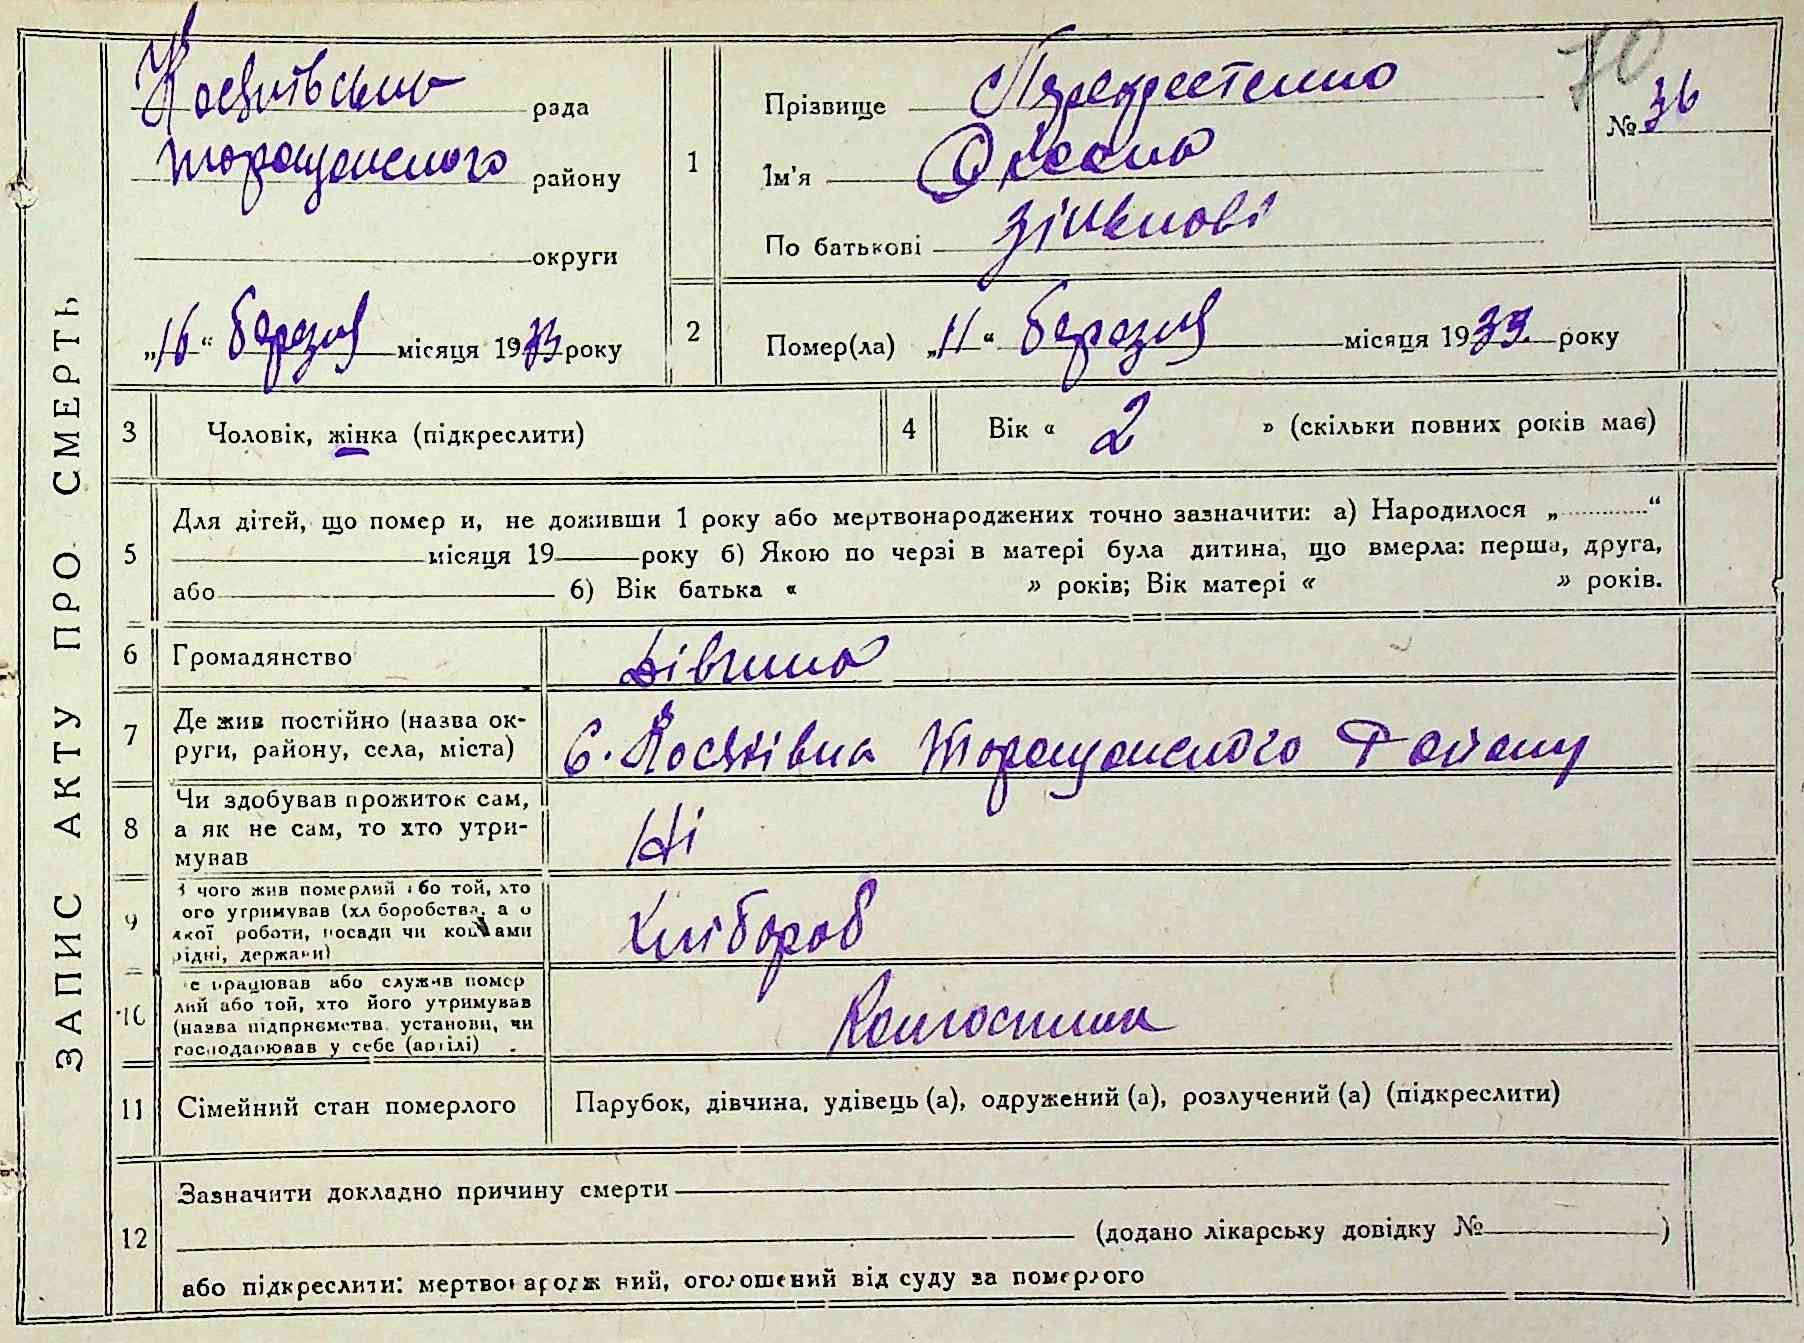 ЗАПИС АКТУ ПРО СМЕРТЬ
70
рада
Таращанского району
округи
„16“ березня місяця 1933 року
1
Прізвище Перехрестенко
Ім'я Оксана
По батькові
№ 36
2
Помер(ла) „11“ березня місяця 1933 року
3
Чоловік, жінка (підкреслити)
4
Вік « 2 » (скільки повних років має)
5
Для дітей, що помер и, не доживши 1 року або мертвонароджених точно зазначити: а) Народилося „ “
місяця 19 року б) Якою по черзі в матері була дитина, що вмерла: перша, друга,
або б) Вік батька « » років; Вік матері « » років.
6
Громадянство
Дівчина
7
Де жив постійно (назва ок-
руги, району, села, міста)
С. Косяківка Таращанского Району
8
Чи здобував прожиток сам,
а як не сам, то хто утри-
мував
Ні
9
чого жив померлий або той, хто
ого утримував (хл боробства, а о
якої роботи, посади чи коштами
рідні, держави)
Хлібороб
10
е працював або служив помер
лий або той, хто його утримував
(назва підприємства, установи, чи
господарював у себе (артілі)
Колгоспник
11
Сімейний стан померлого
Парубок, дівчина, удівець (а), одружений (а), розлучений (а) (підкреслити)
12
Зазначити докладно причину смерти
(додано лікарську довідку № )
або підкреслити: мертвонародж ний, оголошений від суду за померлого